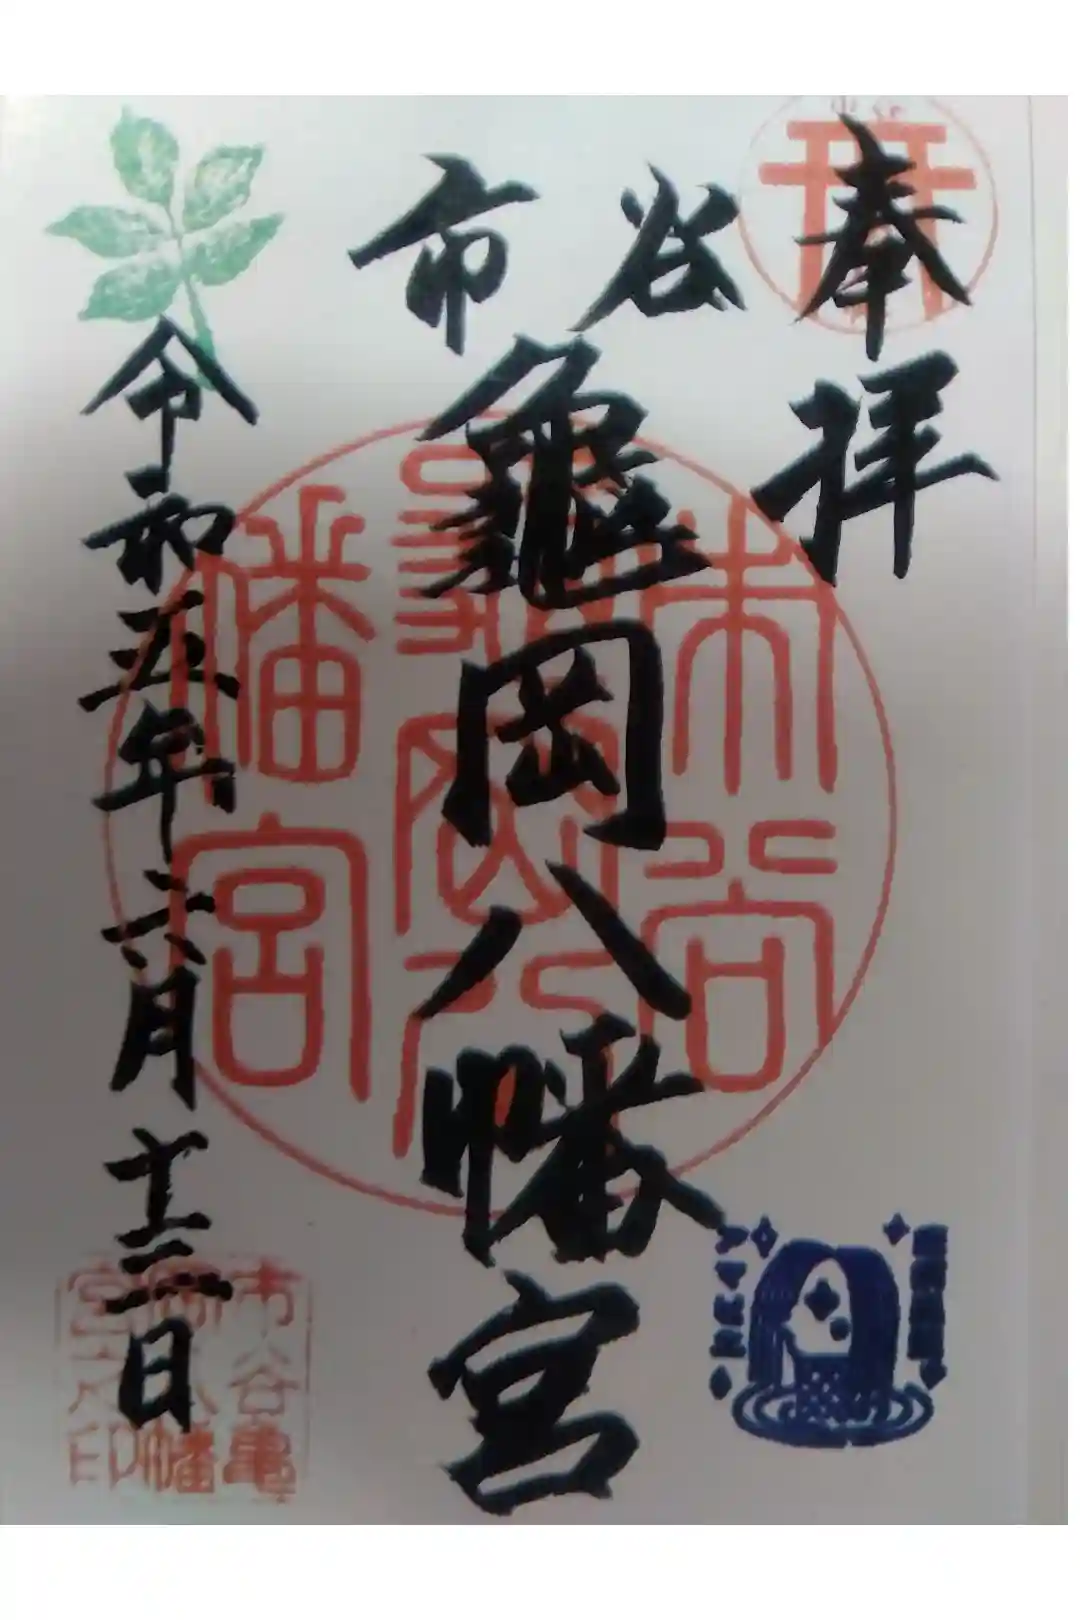 奉拝
市谷
龜岡八幡宮
令和五年六月十三日
市谷
龜岡八
幡宮
市谷亀
岡八幡
宮之印